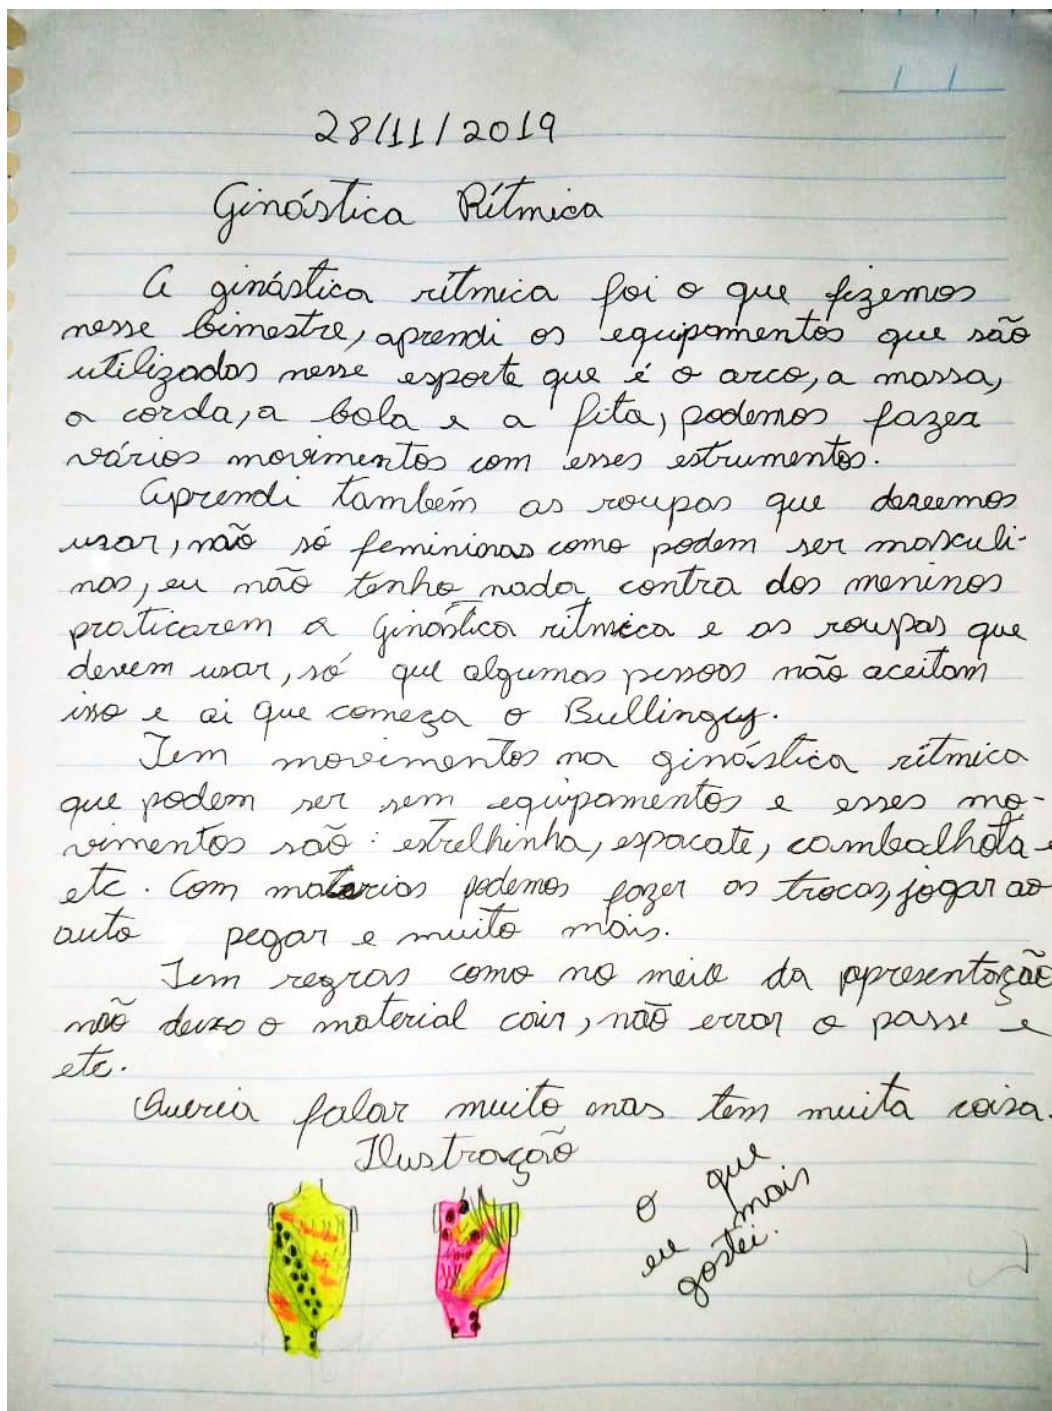 28/11/2019
Ginástica Rítmica
A ginástica rítmica foi o que fizemos
nesse bimestre, aprendi os equipamentos que são
utilizados nesse esporte que é o arco, a massa,
a corda, a bola e a fita, podemos fazer
vários movimentos com esses estrumentos.
Aprendi também as roupas que devemos
usar, não só femininas como podem ser masculi-
nas, eu não tenho nada contra dos meninos
praticarem a Ginástica ritmica e as roupas que
devem usar, só que algumas pessoas não aceitam
isso e ai que começa o Bullinguy.
Tem movimentos na ginástica rítmica
que podem ser sem equipamentos e esses mo-
vimentos são: estrelhinha, espacate, cambalhota e
etc. Com materias podemos fazer as trocas, jogar ao
auto pegar e muito mais.
Tem regras como no meio da apresentação
não deixo o material cair, não errar o passe e
etc.
Queria falar muito mas tem muita coisa.
Ilustração
O que
eu mais
gostei.